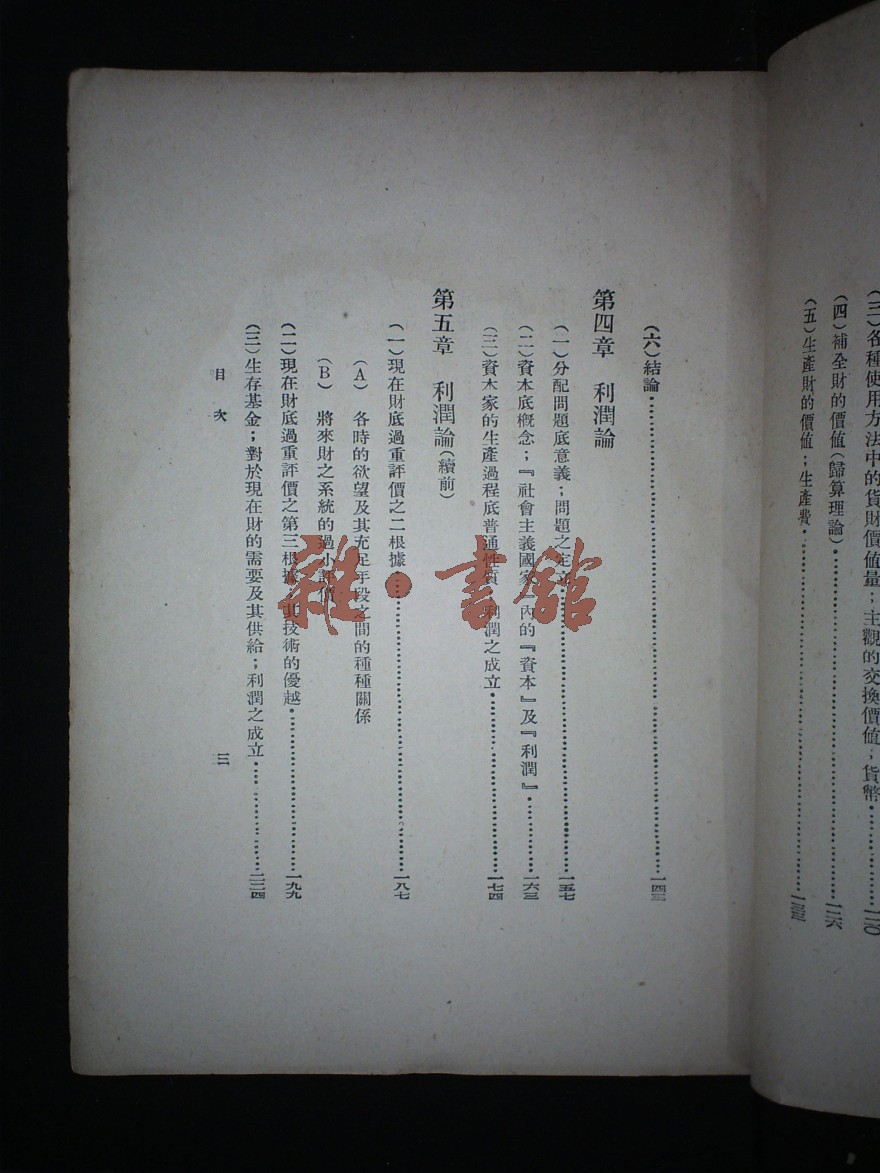 (三)各種使用方法中的貨財價值量;主觀的交換價值;貨幣………一二〇
(四)補全財的價值(歸算理論)………一二六
(五)生產財的價值;生產費………一三三
(六)結論………一四三
第四章 利潤論
(一)分配問題底意義;問題之定立………一五七
(二)資本底概念;『社會主義國家』內的『資本』及『利潤』………一六三
(三)資本家的生產過程底普通性質 利潤之成立………一七四
第五章 利潤論(續前)
(一)現在財底過重評價之二根據………一八七
(A) 各時的欲望及其充足手段之間的種種關係
(B) 將來財之系統的過小評價
(二)現在財底過重評價之第三根據 其技術的優越………一九九
(三)生存基金;對於現在財的需要及其供給;利潤之成立………二二四
目次 三
雜·書館